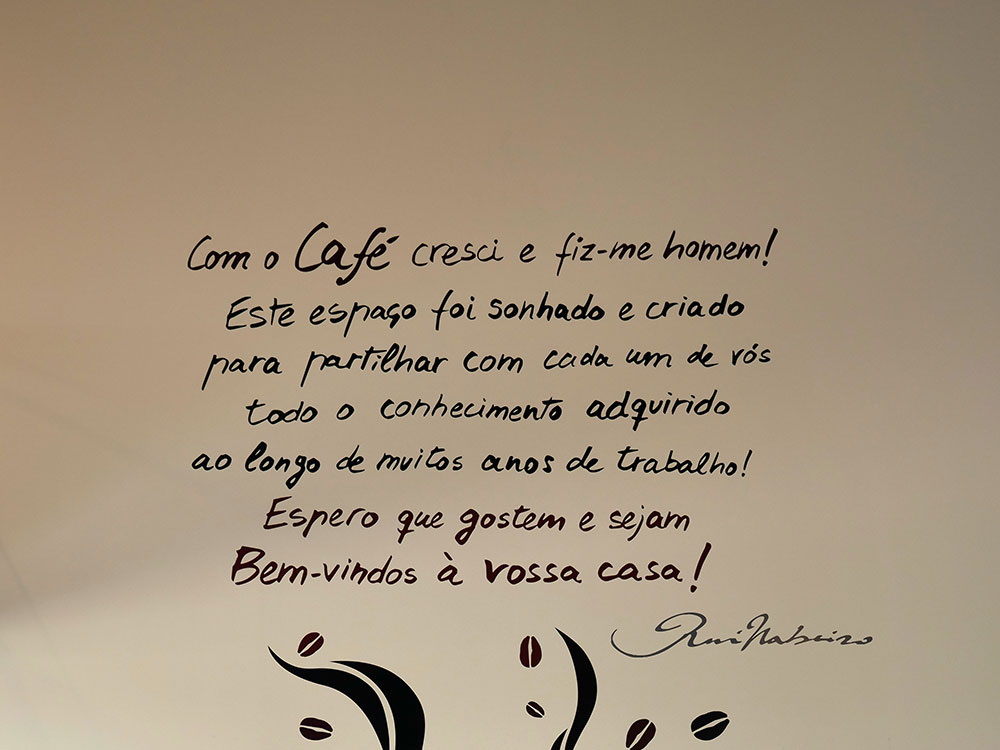 Com o Café cresci e fiz-me homem!
Este espaço foi sonhado e criado
para partilhar com cada um de vós
todo o conhecimento adquirido
ao longo de muitos anos de trabalho!
Espero que gostem e sejam
Bem-vindos à vossa casa!
Rui Nabeiro